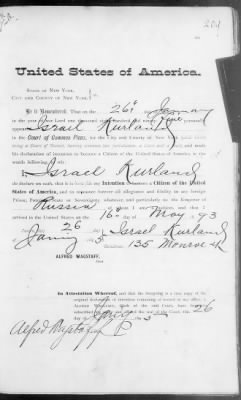 201
United States of America.
STATE OF NEW YORK,
CITY AND COUNTY OF NEW YORK,
Be it Remembered, That on the 26 day of January
in the year of our Lord one thousand eight hundred and ninety five personally
appeared Israel Kurland in the
Court of Common Pleas, for the City and County of New York
his declaration of intention to become a Citizen of the United States of America, in the
words following, to wit:
I, Israel Kurland
do declare on oath, that it is bona fide my Intention to become a Citizen of the United
States of America, and to renounce forever all allegiance and fidelity to any foreign
Prince, Potentate, State or Sovereignty whatever, and particularly to the Emperor
of Russia of whom I am a subject, and that I
arrived in the United States on the 16 day of May 93
26
Jany 5 Israel Kurland
Residence, 135 Monroe St
ALFRED WAGSTAFF,
Clerk.
In Attestation Whereof, and that the foregoing is a true copy of the
original declaration of intention remaining of record in my office, I,
ALFRED WAGSTAFF, Clerk of the said Court, have hereunto
subscribed my name and affixed the seal of the said Court, this 26
day of Jany 5
Alfred Wagstaff